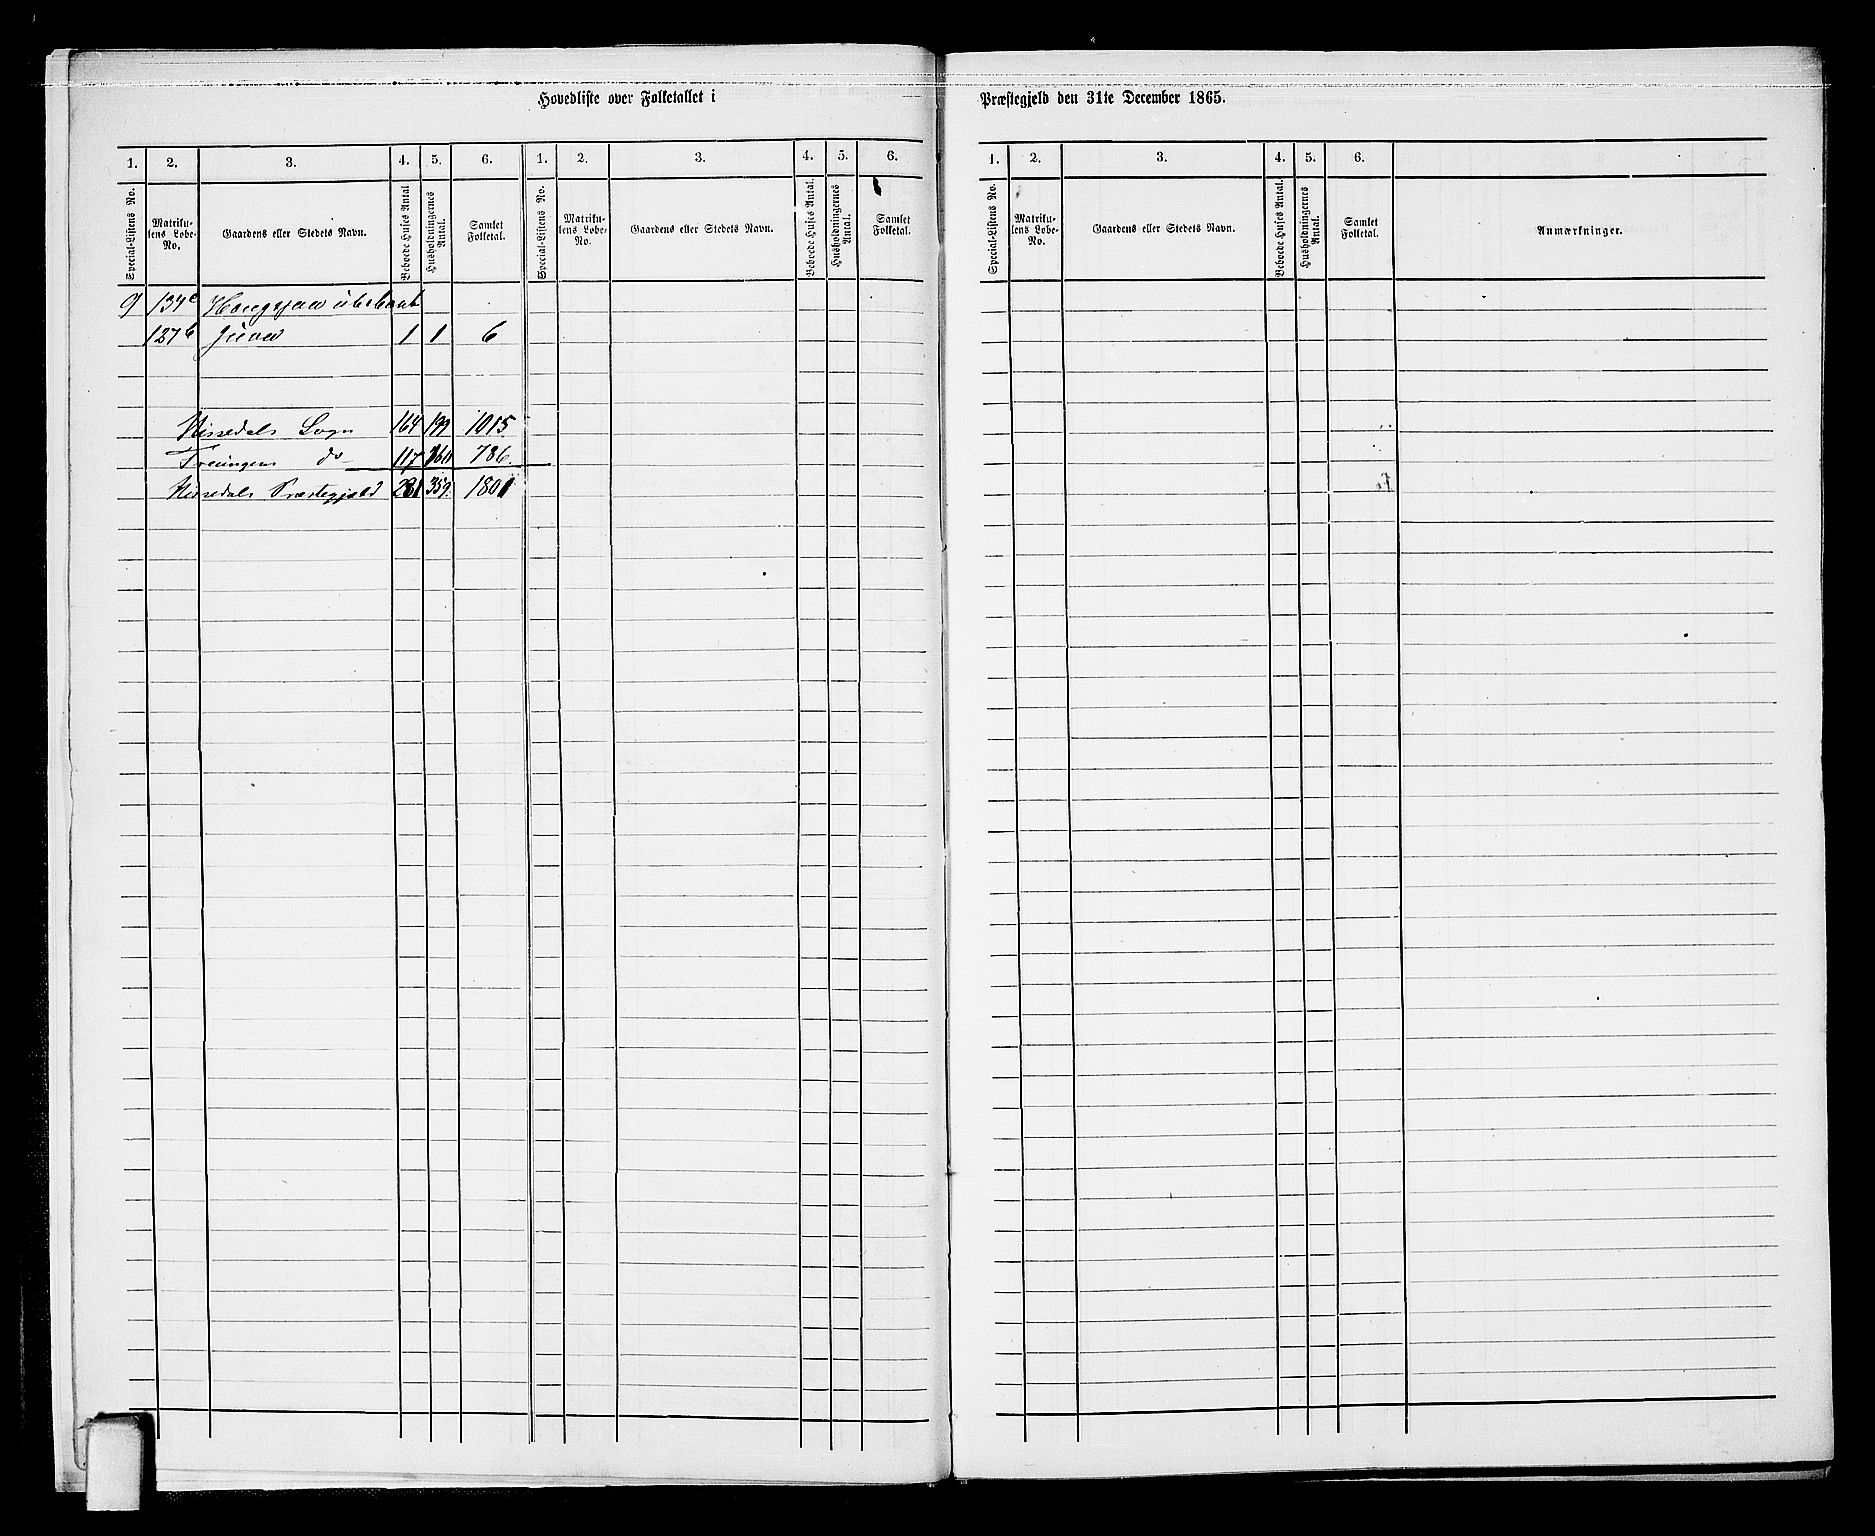 Hovedliste over Folketallet i
Præstegjeld den 31te December 1865.
1. 2. 3. 4. 5. 6. 1. 2. 3. 4. 5. 6.
Special-Listens No. Matrikulens Løbe-No. Gaardens eller Stedets Navn. Beboede Huses Antal Husholdningernes Antal. Samlet Folketal. Special-Listens No. Matrikulens Løbe-No. Gaardens eller Stedets Navn. Beboede Huses Antal. Husholdningernes Antal. Samlet Folketal.
9 134c
127b Juva 1 1 6
Nissedals Sogn 164 199 1015
Treungens do 117 160 786
Nissedals Præstegjeld 281 359. 1801
1. 2. 3. 4. 5. 6.
Special-Listens No. Matrikulens Løbe-No. Gaardens eller Stedets Navn. Beboede Huses Antal. Husholdningernes Antal. Samlet Folketal. Anmærkninger.